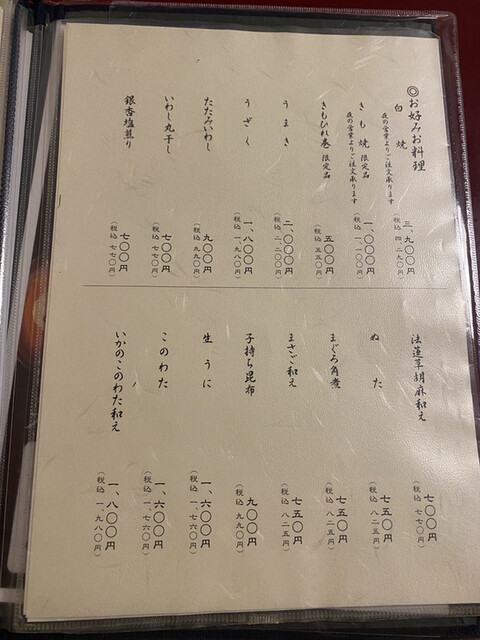 ◎お好みお料理
白焼
夜の営業よりご注文承ります
三、九〇〇円
(税込 四、二九〇円)
きも焼 限定品
夜の営業よりご注文承ります
一、〇〇〇円
(税込 一、一〇〇円)
きもひれ巻 限定品
五〇〇円
(税込 五五〇円)
うまき
二、〇〇〇円
(税込 二、二〇〇円)
うざく
一、八〇〇円
(税込 一、九八〇円)
たたみいわし
九〇〇円
(税込 九九〇円)
いわし丸干し
七〇〇円
(税込 七七〇円)
銀杏塩煎り
七〇〇円
(税込 七七〇円)
法蓮草胡麻和え
七〇〇円
(税込 七七〇円)
ぬた
七五〇円
(税込 八二五円)
まぐろ角煮
七五〇円
(税込 八二五円)
まさご和え
七五〇円
(税込 八二五円)
子持ち昆布
九〇〇円
(税込 九九〇円)
生うに
一、六〇〇円
(税込 一、七六〇円)
このわた
一、六〇〇円
(税込 一、七六〇円)
いかのこのわた和え
一、八〇〇円
(税込 一、九八〇円)